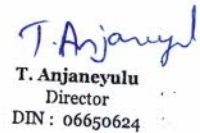 T. Anjaneyul
T. Anjaneyulu
Director
DIN : 06650624